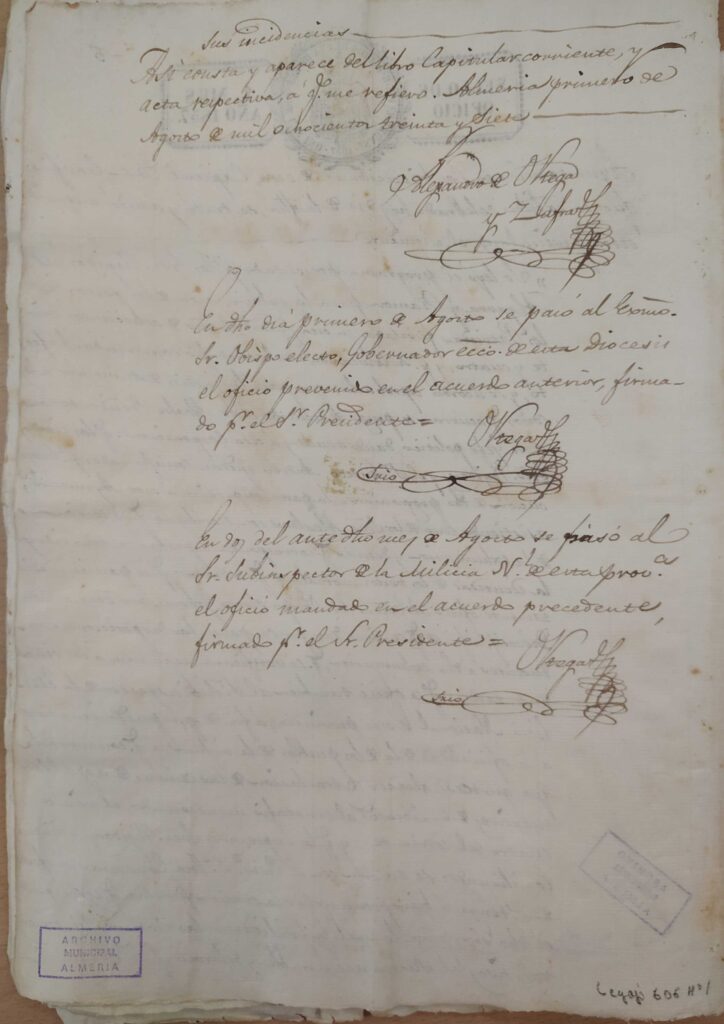 sus incidencias
Así consta y aparece del libro Capitular corriente, y
acta respectiva, á q.e me refiero. Almeria primero de
Agosto de mil ochocientos treinta y siete
Alejandro de Ortega
y Zafra
En dho dia primero de Agosto se pasó al Exmo.
Sr. Obispo electo, Gobernador ecco. de esta Diocesis
el oficio prevenido en el acuerdo anterior, firma-
do p.r el S.r Presidente =
Ortega
Srio
En dos del antedho mes de Agosto se pasó al
Sr. Subinspector de la Milicia N.l de esta prov.a
el oficio mandado en el acuerdo precedente,
firmado p.r el Sr. Presidente =
Ortega
Srio
ARCHIVO
MUNICIPAL
ALMERIA
ARCHIVO
MUNICIPAL
ALMERIA
Legajo 606 Nº 1